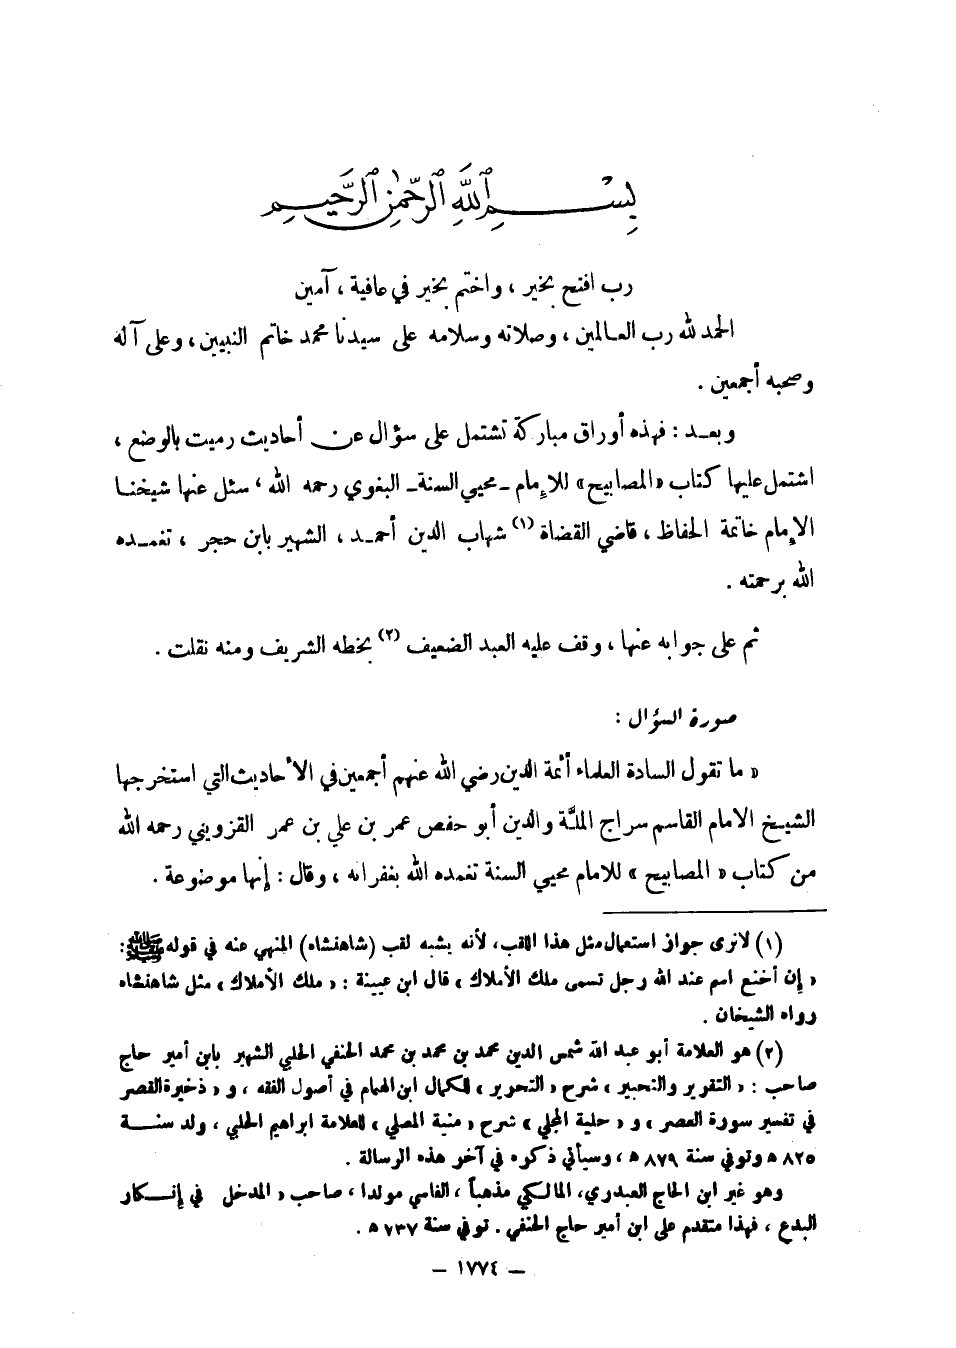 بسم الله الرحمن الرحيم
رب افتح بخير ، واختم بخير في عافية ، آمين
الحمد لله رب العالمين ، وصلاته وسلامه على سيدنا محمد خاتم النبيين ، وعلى آله
وصحبه أجمعين .
وبعد : فهذه أوراق مباركة تشتمل على سؤال عن أحاديث رميت بالوضع ،
اشتمل عليها كتاب «المصابيح» للإمام ـ محيي السنة ـ البغوي رحمه الله ، سئل عنها شيخنا
الإمام خاتمة الحفاظ ، قاضي القضاة (١) شهاب الدين أحمد ، الشهير بابن حجر ، تغمده
الله برحمته .
ثم على جوابه عنها ، وقف عليه العبد الضعيف (٢) بخطه الشريف ومنه نقلت .
صورة السؤال :
« ما تقول السادة العلماء أئمة الدين رضي الله عنهم أجمعين في الأحاديث التي استخرجها
الشيخ الامام القاسم سراج الملة والدين أبو حفص عمر بن علي بن عمر القزويني رحمه الله
من كتاب « المصابيح » للامام محيي السنة تغمده الله بغفرانه ، وقال : إنها موضوعة .
(١) لانرى جواز استعمال مثل هذا اللقب، لأنه يشبه لقب (شاهنشاه) المنهي عنه في قوله ﷺ :
« إن أخنع اسم عند الله رجل تسمى ملك الأملاك » قال ابن عيينة : « ملك الأملاك » مثل شاهنشاه
رواه الشيخان .
(٢) هو العلامة أبو عبد الله شمس الدين محمد بن محمد بن محمد الحنفي الحلبي الشهير بابن أمير حاج
صاحب : « التقرير والتحبير » شرح « التحرير » للكمال ابن الهمام في أصول الفقه ، و « ذخيرة القصر
في تفسير سورة العصر » و « حلية المجلي » شرح « منية المصلي » للعلامة ابراهيم الحلبي ، ولد سنة
٨٢٥ ه وتوفي سنة ٨٧٩ ه ، وسيأتي ذكره في آخر هذه الرسالة .
وهو غير ابن الحاج العبدري، المالكي مذهباً ، الفاسي مولدا ، صاحب « المدخل في إنكار
البدع ، فهذا متقدم على ابن أمير حاج الحنفي . توفي سنة ٧٣٧ ه .
– ١٧٧٤ –